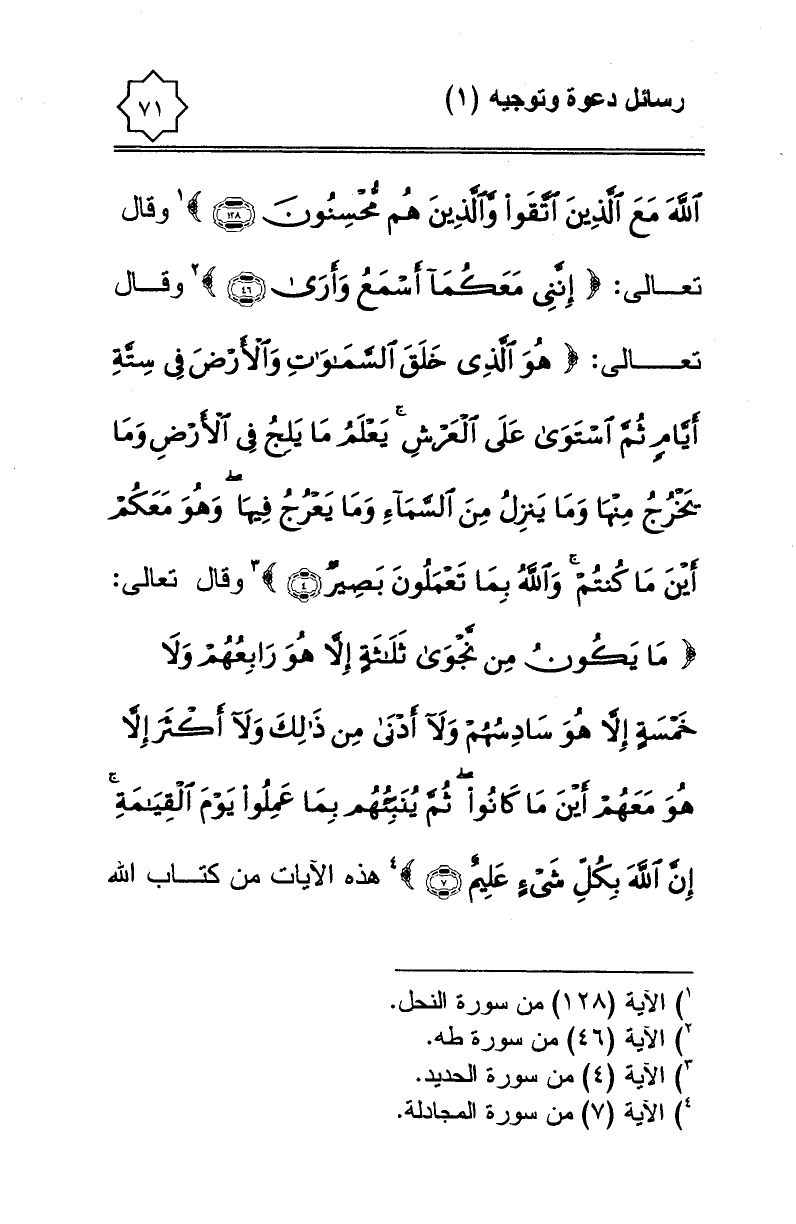 رسائل دعوة وتوجيه (١)
٧١
ٱللَّهَ مَعَ ٱلَّذِينَ ٱتَّقَوا۟ وَّٱلَّذِينَ هُم مُّحْسِنُونَ ١٢٨ ﴾١ وقال
تعـــالى: ﴿ إِنَّنِى مَعَكُمَآ أَسْمَعُ وَأَرَىٰ ٤٦ ﴾٢ وقـــال
تعـــــالى: ﴿ هُوَ ٱلَّذِى خَلَقَ ٱلسَّمَـٰوَٰتِ وَٱلْأَرْضَ فِى سِتَّةِ
أَيَّامٍ ثُمَّ ٱسْتَوَىٰ عَلَى ٱلْعَرْشِ ۚ يَعْلَمُ مَا يَلِجُ فِى ٱلْأَرْضِ وَمَا
يَخْرُجُ مِنْهَا وَمَا يَنزِلُ مِنَ ٱلسَّمَآءِ وَمَا يَعْرُجُ فِيهَا ۖ وَهُوَ مَعَكُمْ
أَيْنَ مَا كُنتُمْ ۚ وَٱللَّهُ بِمَا تَعْمَلُونَ بَصِيرٌ ٤ ﴾٣ وقال تعالى:
﴿ مَا يَكُونُ مِن نَّجْوَىٰ ثَلَـٰثَةٍ إِلَّا هُوَ رَابِعُهُمْ وَلَا
خَمْسَةٍ إِلَّا هُوَ سَادِسُهُمْ وَلَآ أَدْنَىٰ مِن ذَٰلِكَ وَلَآ أَكْثَرَ إِلَّا
هُوَ مَعَهُمْ أَيْنَ مَا كَانُوا۟ ۖ ثُمَّ يُنَبِّئُهُم بِمَا عَمِلُوا۟ يَوْمَ ٱلْقِيَـٰمَةِ ۚ
إِنَّ ٱللَّهَ بِكُلِّ شَىْءٍ عَلِيمٌ ٧ ﴾٤ هذه الآيات من كتـــاب الله
١) الآية (١٢٨) من سورة النحل.
٢) الآية (٤٦) من سورة طه.
٣) الآية (٤) من سورة الحديد.
٤) الآية (٧) من سورة المجادلة.